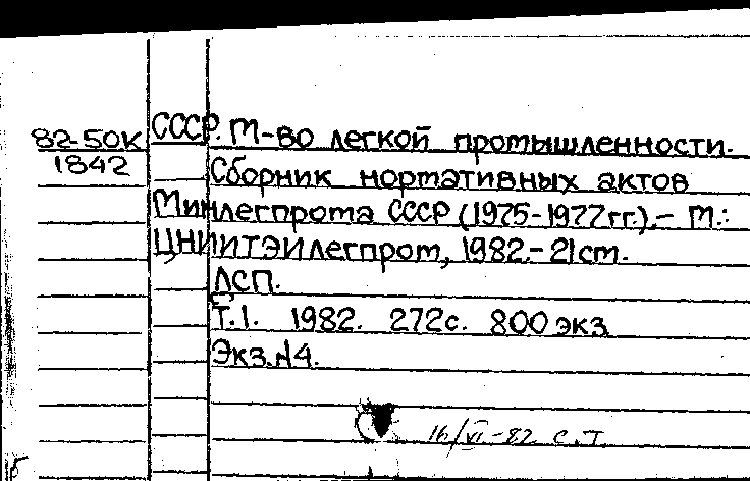 82-50К СССР. М-во легкой промышленности.
1842 Сборник нормативных актов
Минлегпрома СССР (1975-1977 гг.).- М.:
ЦНИИТЭИлегпром, 1982.- 21 cm.
ДСП.
Т.1. 1982. 272 с. 800 экз
Экз.N4.
16/VI-82 С.Т.